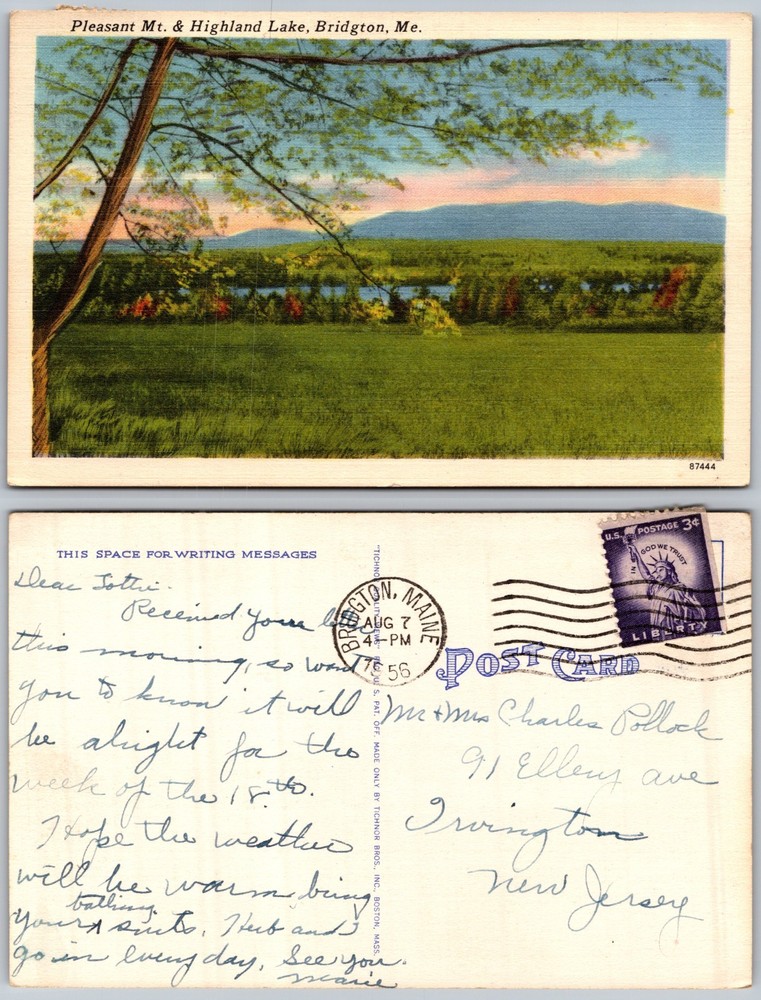 Pleasant Mt. & Highland Lake, Bridgton, Me.
87444
THIS SPACE FOR WRITING MESSAGES
Dear Lottie.
Received your
this morning, so want
you to know it will
be alright for the
week of the 18th.
Hope the weather
will be warm, bring
bathing
your suits, Herb and I
go in every day, See you.
Marie
"TICHNOR QUALITY VIEWS" REG. U. S. PAT. OFF. MADE ONLY BY TICHNOR BROS., INC., BOSTON, MASS.
BRIDGTON, MAINE
AUG 7
4 - PM
1956
U.S. POSTAGE 3¢
IN GOD WE TRUST
LIBERTY
POST CARD
Mr + Mrs Charles Pollock
91 Ellery ave
Irvington
New Jersey